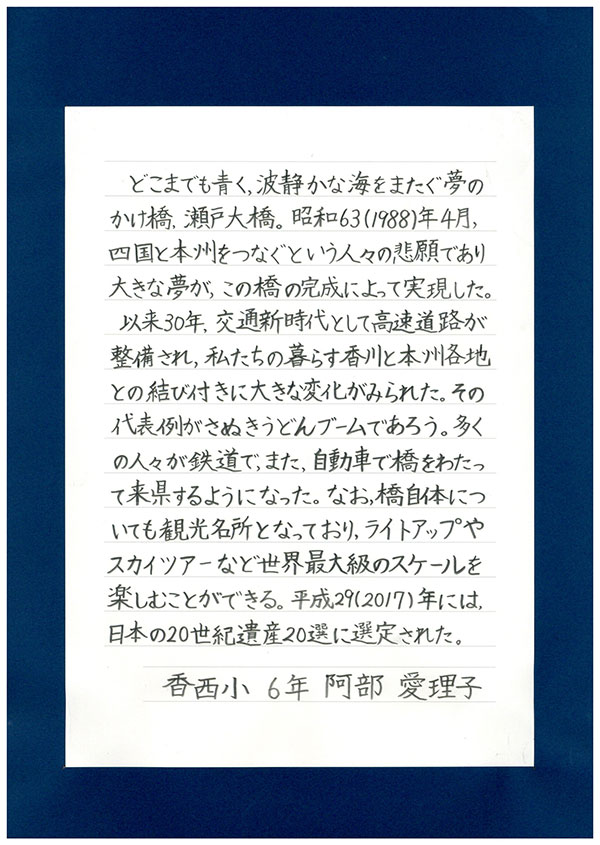 どこまでも青く,波静かな海をまたぐ夢の
かけ橋,瀬戸大橋。昭和63(1988)年4月,
四国と本州をつなぐという人々の悲願であり
大きな夢が,この橋の完成によって実現した。
以来30年,交通新時代として高速道路が
整備され,私たちの暮らす香川と本州各地
との結び付きに大きな変化がみられた。その
代表例がさぬきうどんブームであろう。多く
の人々が鉄道で,また,自動車で橋をわたっ
て来県するようになった。なお,橋自体につ
いても観光名所となっており,ライトアップや
スカイツアーなど世界最大級のスケールを
楽しむことができる。平成29(2017)年には,
日本の20世紀遺産20選に選定された。
香西小 6年 阿部 愛理子